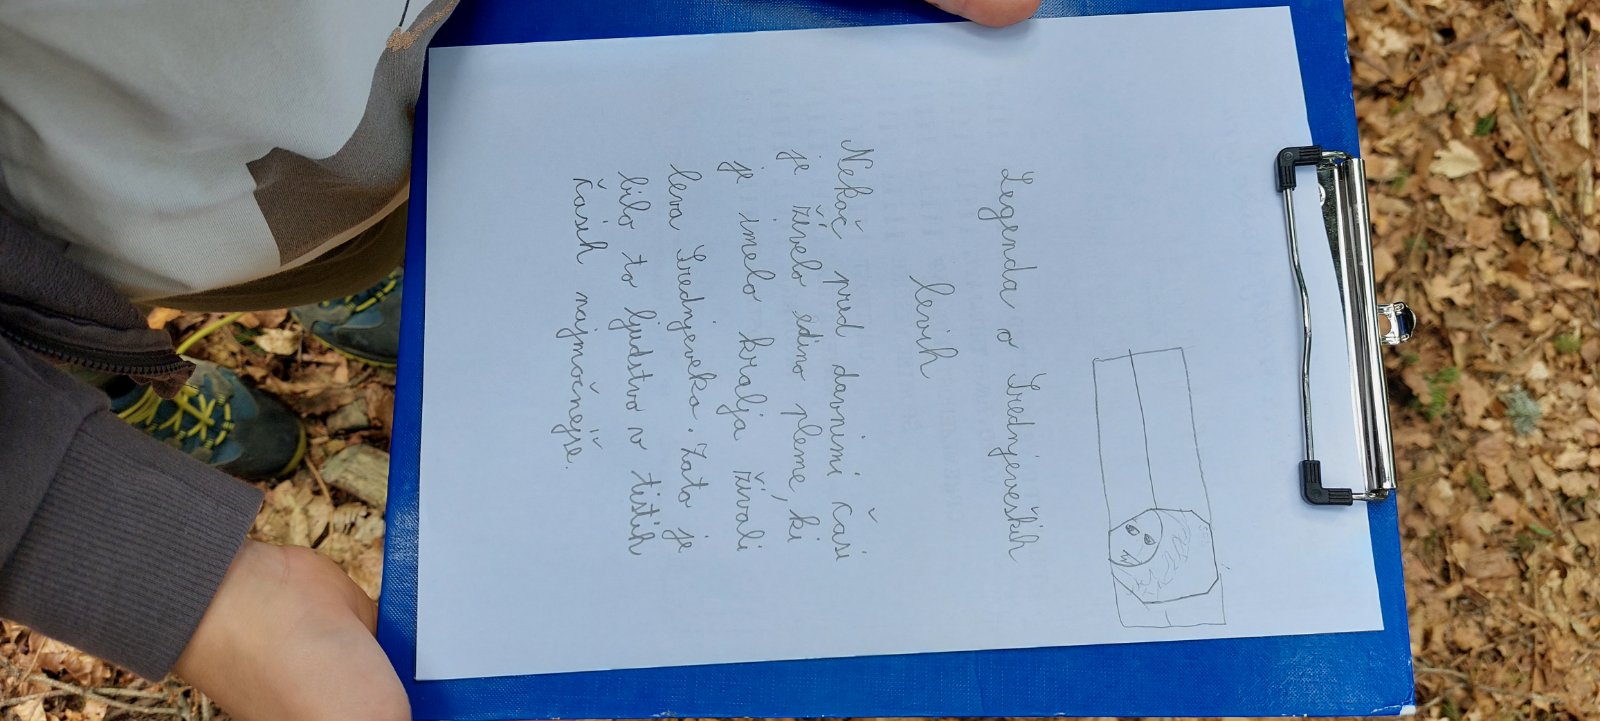 Legenda o Srednjeveških
levih
Nekoč pred davnimi časi
je živelo edino pleme, ki
je imelo kralja živali
leva Srednjeveka. Zato je
bilo to ljudstvo v tistih
časih najmočnejše.